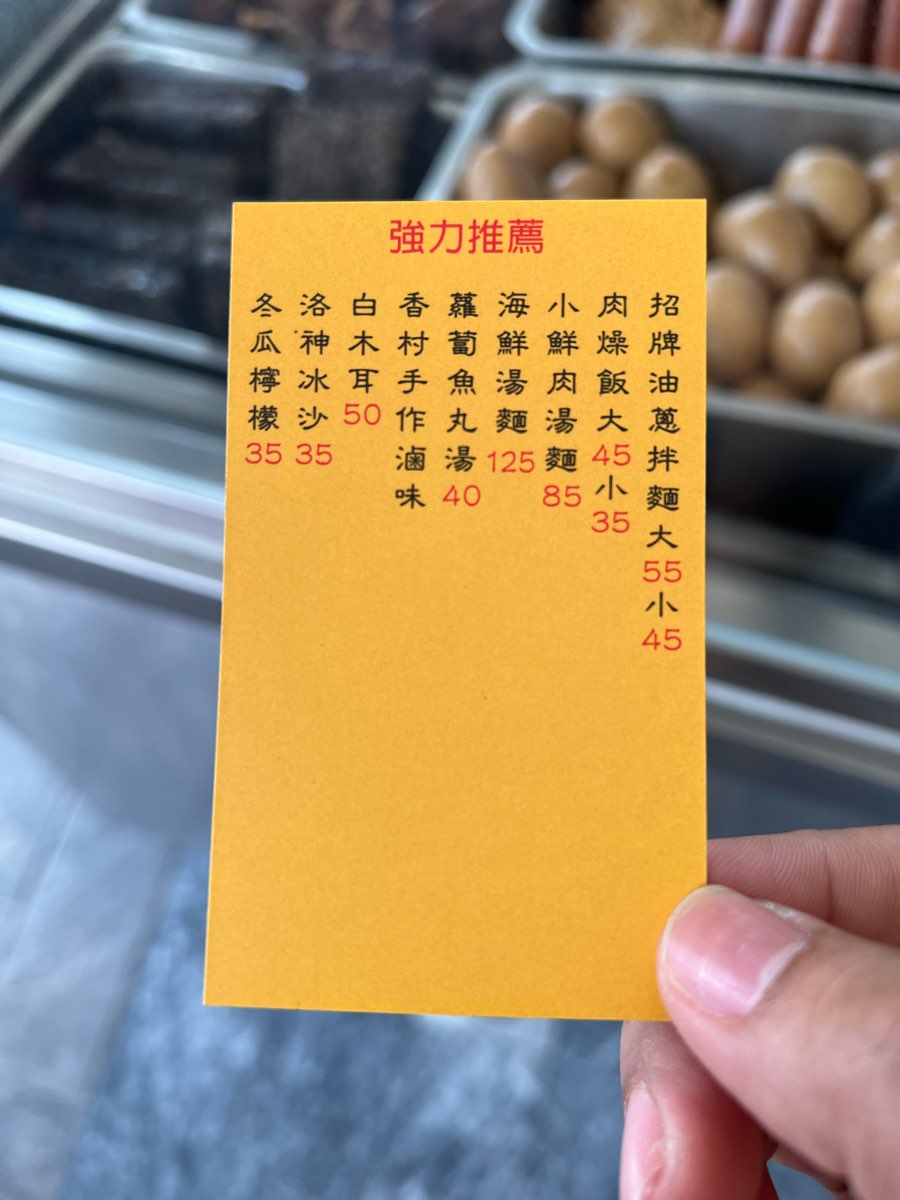 強力推薦
招牌油蔥拌麵大55小45
肉燥飯大45小35
小鮮肉湯麵85
海鮮湯麵125
蘿蔔魚丸湯40
香村手作滷味
白木耳50
洛神冰沙35
冬瓜檸檬35